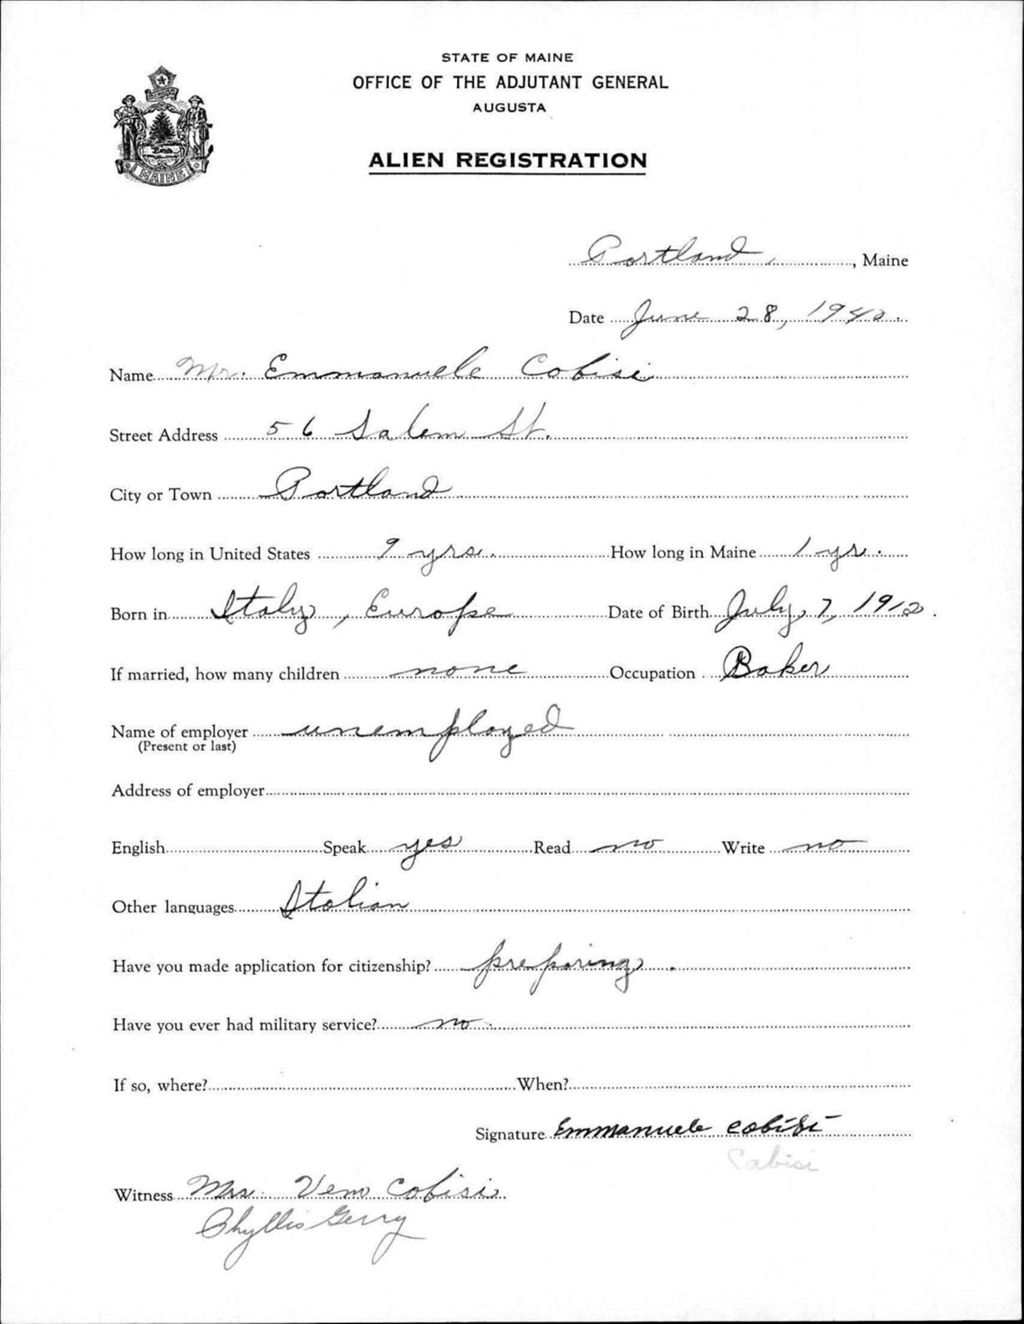 STATE OF MAINE
OFFICE OF THE ADJUTANT GENERAL
AUGUSTA
ALIEN REGISTRATION
MAINE
Portland, Maine
Date June 28, 1940.
Name Mr. Emmanuele Cobisi
Street Address 56 Salem St.
City or Town Portland
How long in United States 9 yrs. How long in Maine 1 yr.
Born in Italy, Europe Date of Birth July, 7, 1912.
If married, how many children none Occupation Baker
Name of employer unemployed
(Present or last)
Address of employer
English Speak yes Read no Write no
Other languages Italian
Have you made application for citizenship? preparing.
Have you ever had military service? no.
If so, where? When?
Signature Emmanuele cobisi
Cabisi
Witness Mrs. Cobisi
Phyllis Gerry